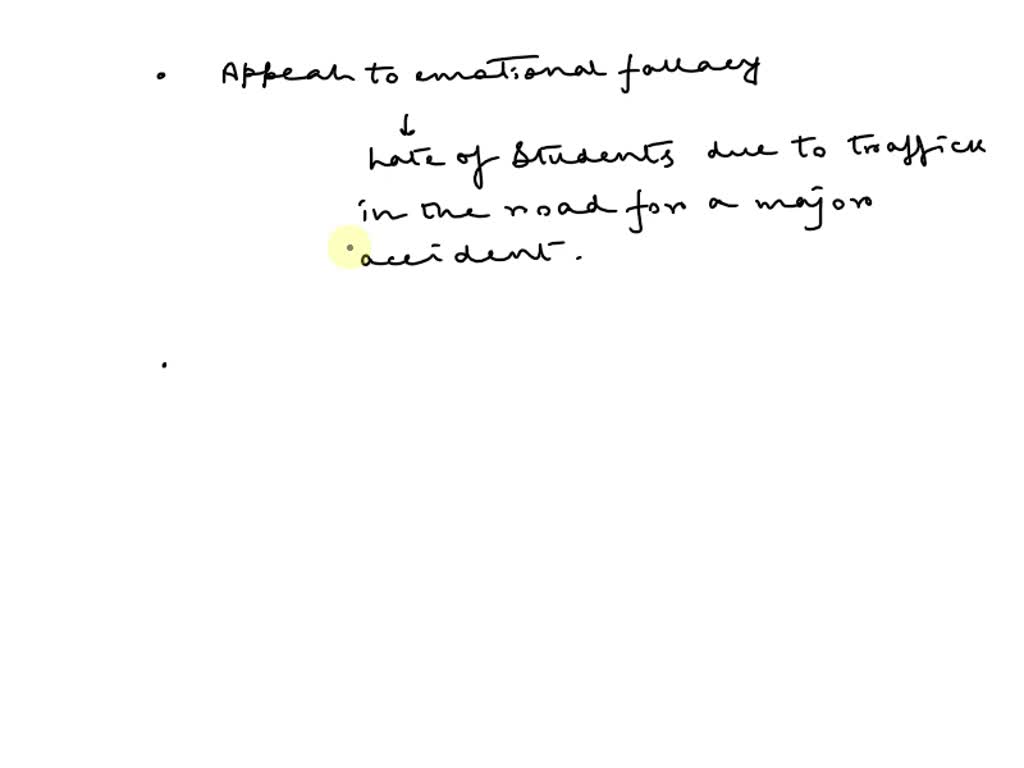 • Appeal to emotional fallacy
↓
Late of students due to traffick
in the road for a major
accident.
.